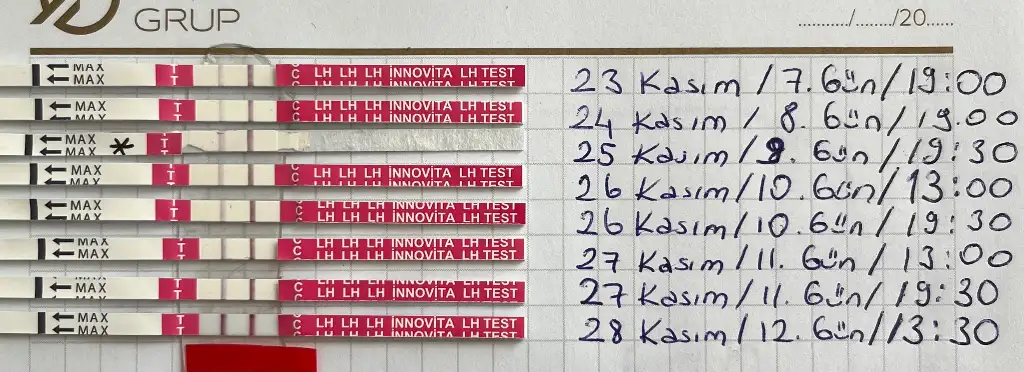 GRUP
........../......./20......
MAX MAX T T C C LH LH LH İNNOVİTA LH TEST LH LH LH İNNOVİTA LH TEST 23 Kasım / 7. Gün / 19:00
MAX MAX T T C C LH LH LH İNNOVİTA LH TEST LH LH LH İNNOVİTA LH TEST 24 Kasım / 8. Gün / 19.00
MAX MAX * T T 25 Kasım / 9. Gün / 19:30
MAX MAX T T C C LH LH LH İNNOVİTA LH TEST 26 Kasım / 10. Gün / 13:00
MAX MAX T T C C LH LH LH İNNOVİTA LH TEST LH LH LH İNNOVİTA LH TEST 26 Kasım / 10. Gün / 19:30
MAX MAX T T C C LH LH LH İNNOVİTA LH TEST 27 Kasım / 11. Gün / 13:00
MAX MAX T T C C LH LH LH İNNOVİTA LH TEST 27 Kasım / 11. Gün / 19:30
MAX MAX T T C C LH LH LH İNNOVİTA LH TEST 28 Kasım / 12. Gün / 13:30